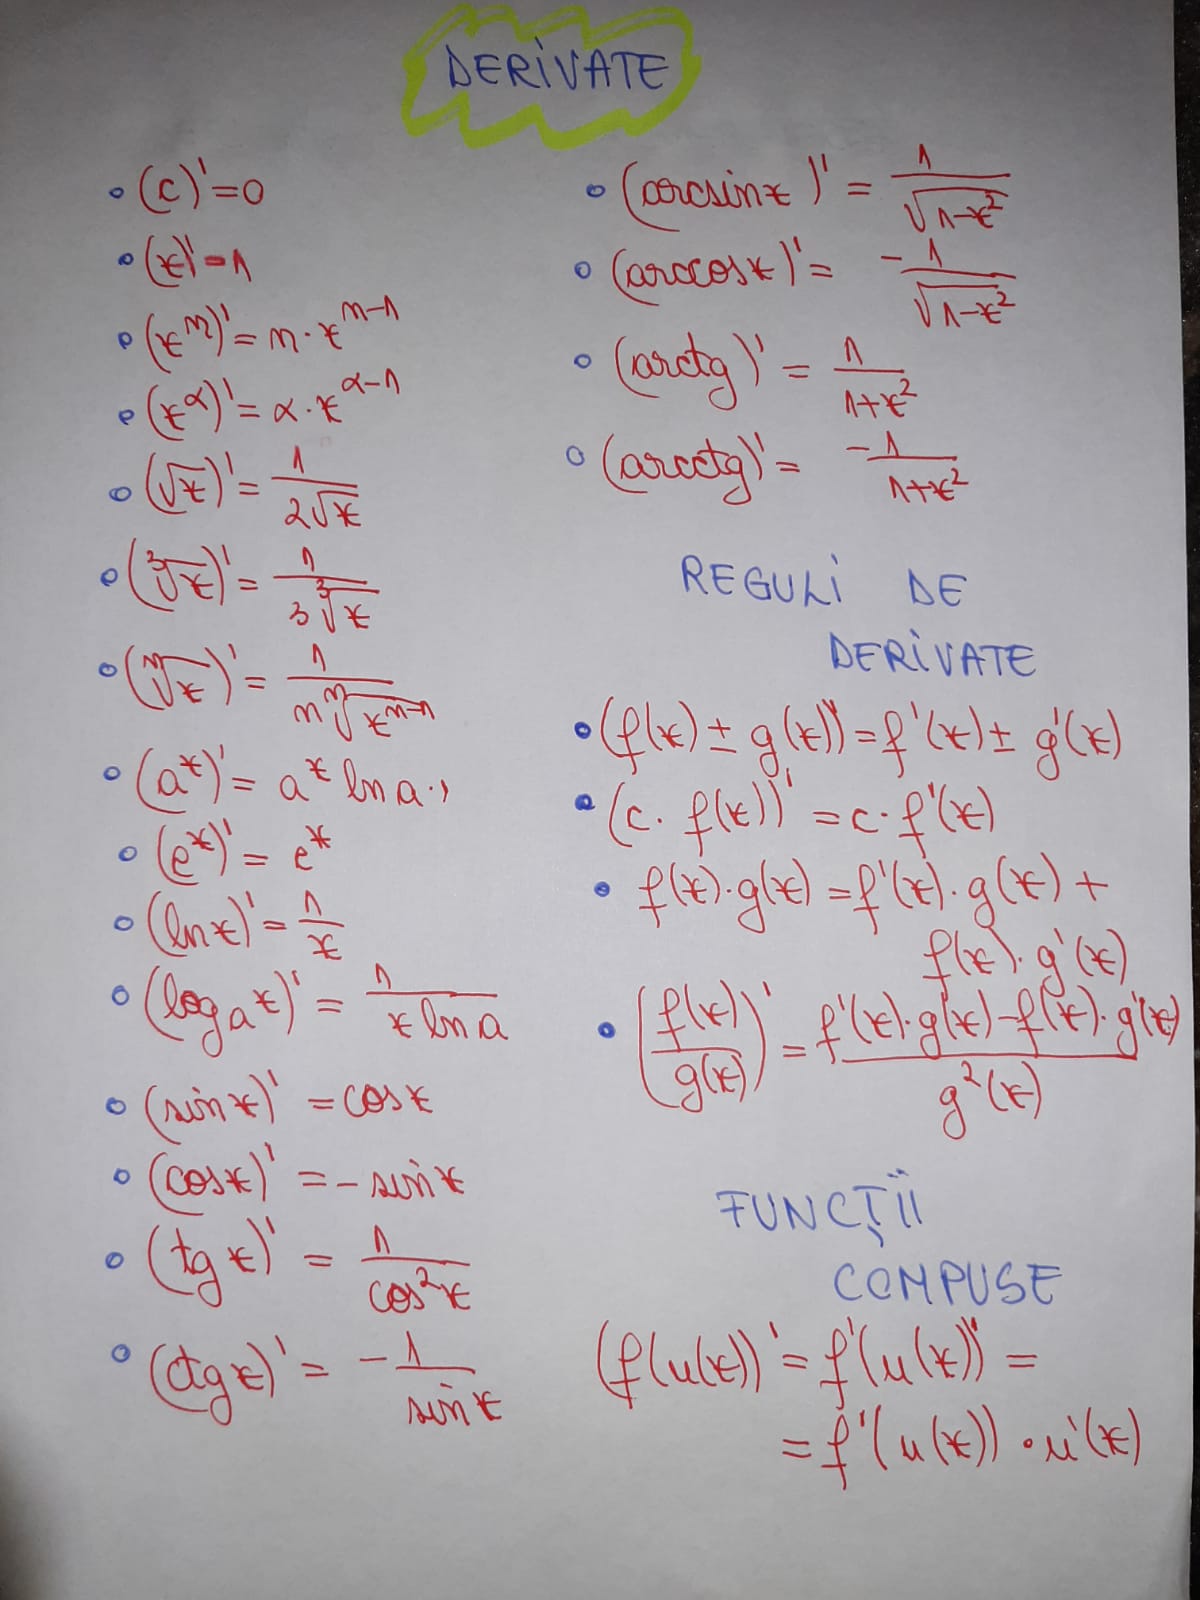 DERIVATE
• (c)' = 0
• (x)' = 1
• (xⁿ)' = n · xⁿ⁻¹
• (x^α)' = α · x^(α-1)
• (√x)' = 1 / 2√x
• (∛x)' = 1 / 3∛x
• (ⁿ√x)' = 1 / n ⁿ√xⁿ⁻¹
• (aˣ)' = aˣ ln a.,
• (eˣ)' = eˣ
• (ln x)' = 1 / x
• (logₐ x)' = 1 / x ln a
• (sin x)' = cos x
• (cos x)' = - sin x
• (tg x)' = 1 / cos² x
• (ctg x)' = - 1 / sin x
• (arcsin x)' = 1 / √1-x²
• (arccos x)' = - 1 / √1-x²
• (arctg)' = 1 / 1+x²
• (arcctg)' = - 1 / 1+x²
REGULI DE
DERIVATE
• (f(x) ± g(x))' = f'(x) ± g'(x)
• (c · f(x))' = c · f'(x)
• f(x) · g(x) = f'(x) · g(x) +
f(x) · g'(x)
• (f(x) / g(x))' = f'(x) · g(x) - f(x) · g'(x) / g²(x)
FUNCȚII
COMPUSE
(f(u(x))' = f'(u(x))' =
= f'(u(x)) · u'(x)